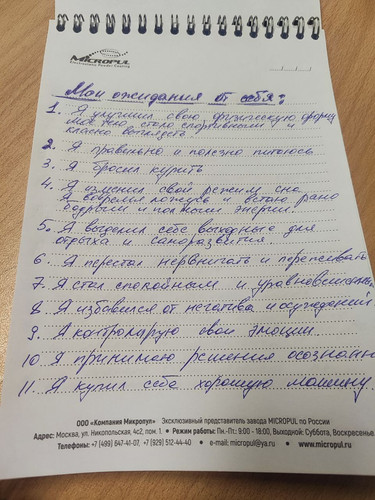 MICROPUL
Мои ожидания от себя:
1. Я улучшил свою физическую форму
моё тело стало спортивным и
классно выглядеть.
2. Я правильно и полезно питаюсь
3. Я бросил курить
4. Я изменил свой режим сна
Я вовремя ложусь и встаю рано
бодрым и полным энергии.
5. Я выделил себе выходные для
отдыха и саморазвития.
6. Я перестал нервничать и переживать
7. Я стал спокойным и уравновешенным
8. Я избавился от негатива и осуждений
9. Я контролирую свои эмоции
10 Я принимаю решения осознанно
11. Я купил себе хорошую машину.
ООО «Компания Микропул» Эксклюзивный представитель завода MICROPUL по России
Адрес: Москва, ул. Никопольская, 4с2, пом. 1. • Режим работы: Пн.-Пт.: 9:00 - 18:00, Выходной: Суббота, Воскресенье.
Телефоны: +7 (499) 647-41-07, +7 (929) 512-44-40 • e-mail: micropul@ya.ru • www.micropul.ru